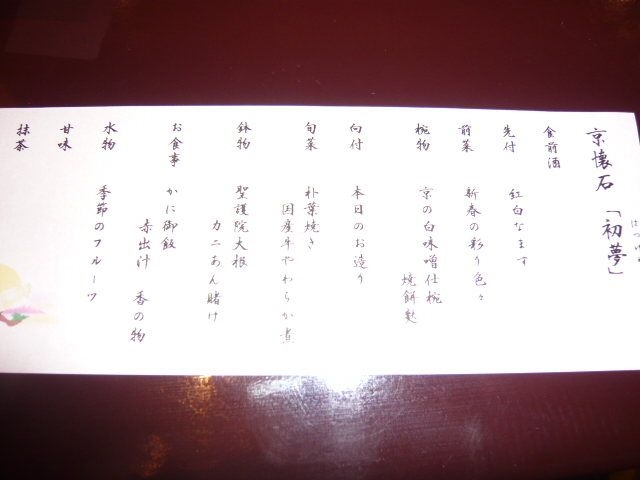 京懐石 「初夢」
はつゆめ
食前酒
先付 紅白なます
前菜 新春の彩り色々
椀物 京の白味噌仕椀
焼餅麩
向付 本日のお造り
旬菜 朴葉焼き
国産牛やわらか煮
鉢物 聖護院大根
カニあん賭け
お食事 かに御飯
赤出汁 香の物
水物 季節のフルーツ
甘味
抹茶